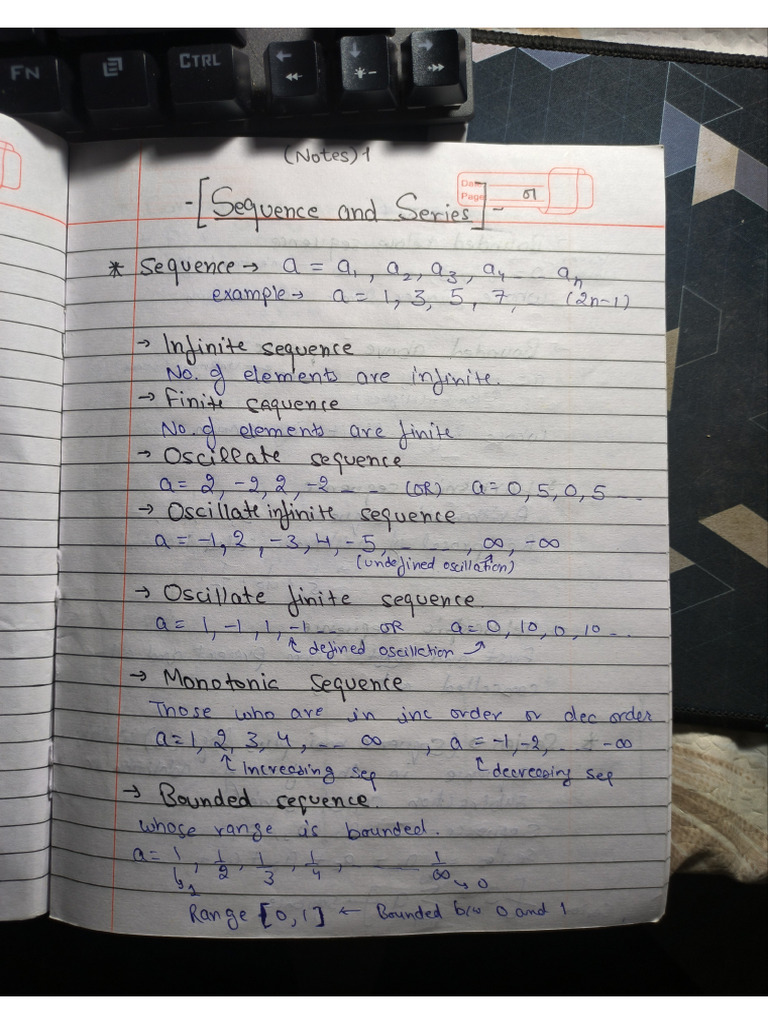 FN
CTRL
(Notes) 1
Date
Page 01
-[Sequence and Series]-
* Sequence → a = a₁, a₂, a₃, a₄ - - aₙ
example → a = 1, 3, 5, 7, (2n-1)
→ Infinite sequence
No. of elements are infinite.
→ Finite sequence
No. of elements are finite
→ Oscillate sequence
a = 2, -2, 2, -2 - - - (OR) a = 0, 5, 0, 5 ...
→ Oscillate infinite sequence
a = -1, 2, -3, 4, -5, _ _ _ _, ∞, -∞
(undefined oscillation)
→ Oscillate finite sequence.
a = 1, -1, 1, -1 - - - OR a = 0, 10, 0, 10 ...
↑ defined oscillation ↗
→ Monotonic sequence
Those who are in inc order or dec order
a = 1, 2, 3, 4, -- - ∞ , a = -1, -2, ... - -∞
↑ Increasing seq ↑ decreasing seq
→ Bounded sequence.
whose range is bounded.
a = 1/1, 1/2, 1/3, 1/4, - - - - 1/∞ → 0
↳ 1
Range [0, 1] ← Bounded b/w 0 and 1